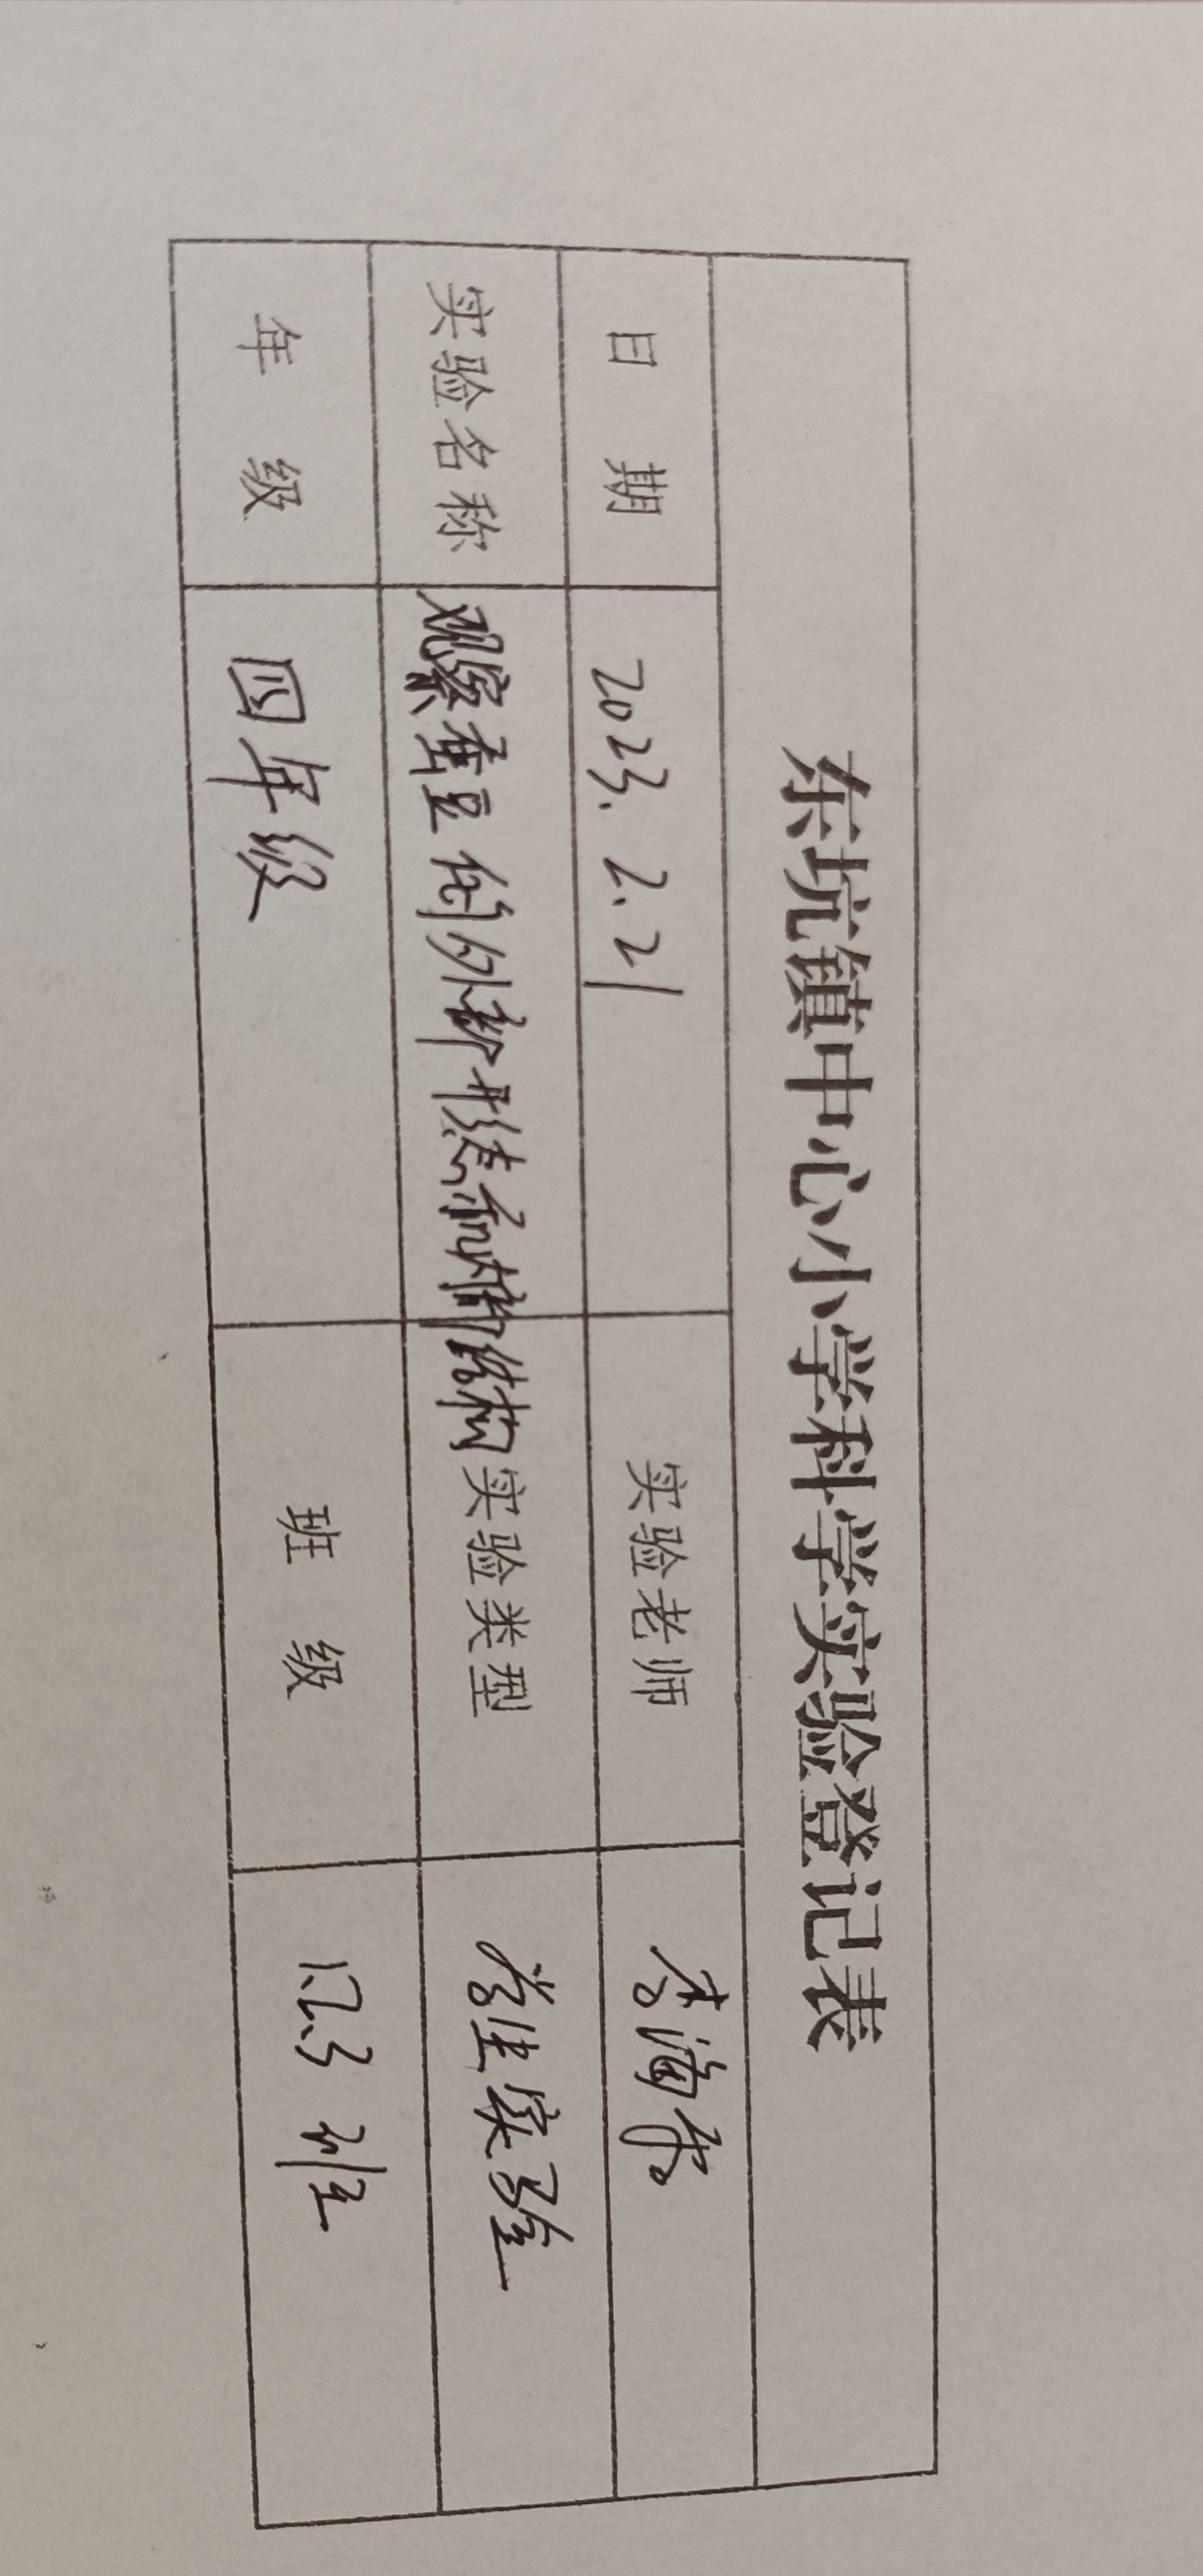 东坑镇中心小学科学实验登记表
日 期 2023.2.21 实验老师 李海
实验名称 观察蚕豆的外部形态和内部结构 实验类型 学生实验
年 级 四年级 班 级 班